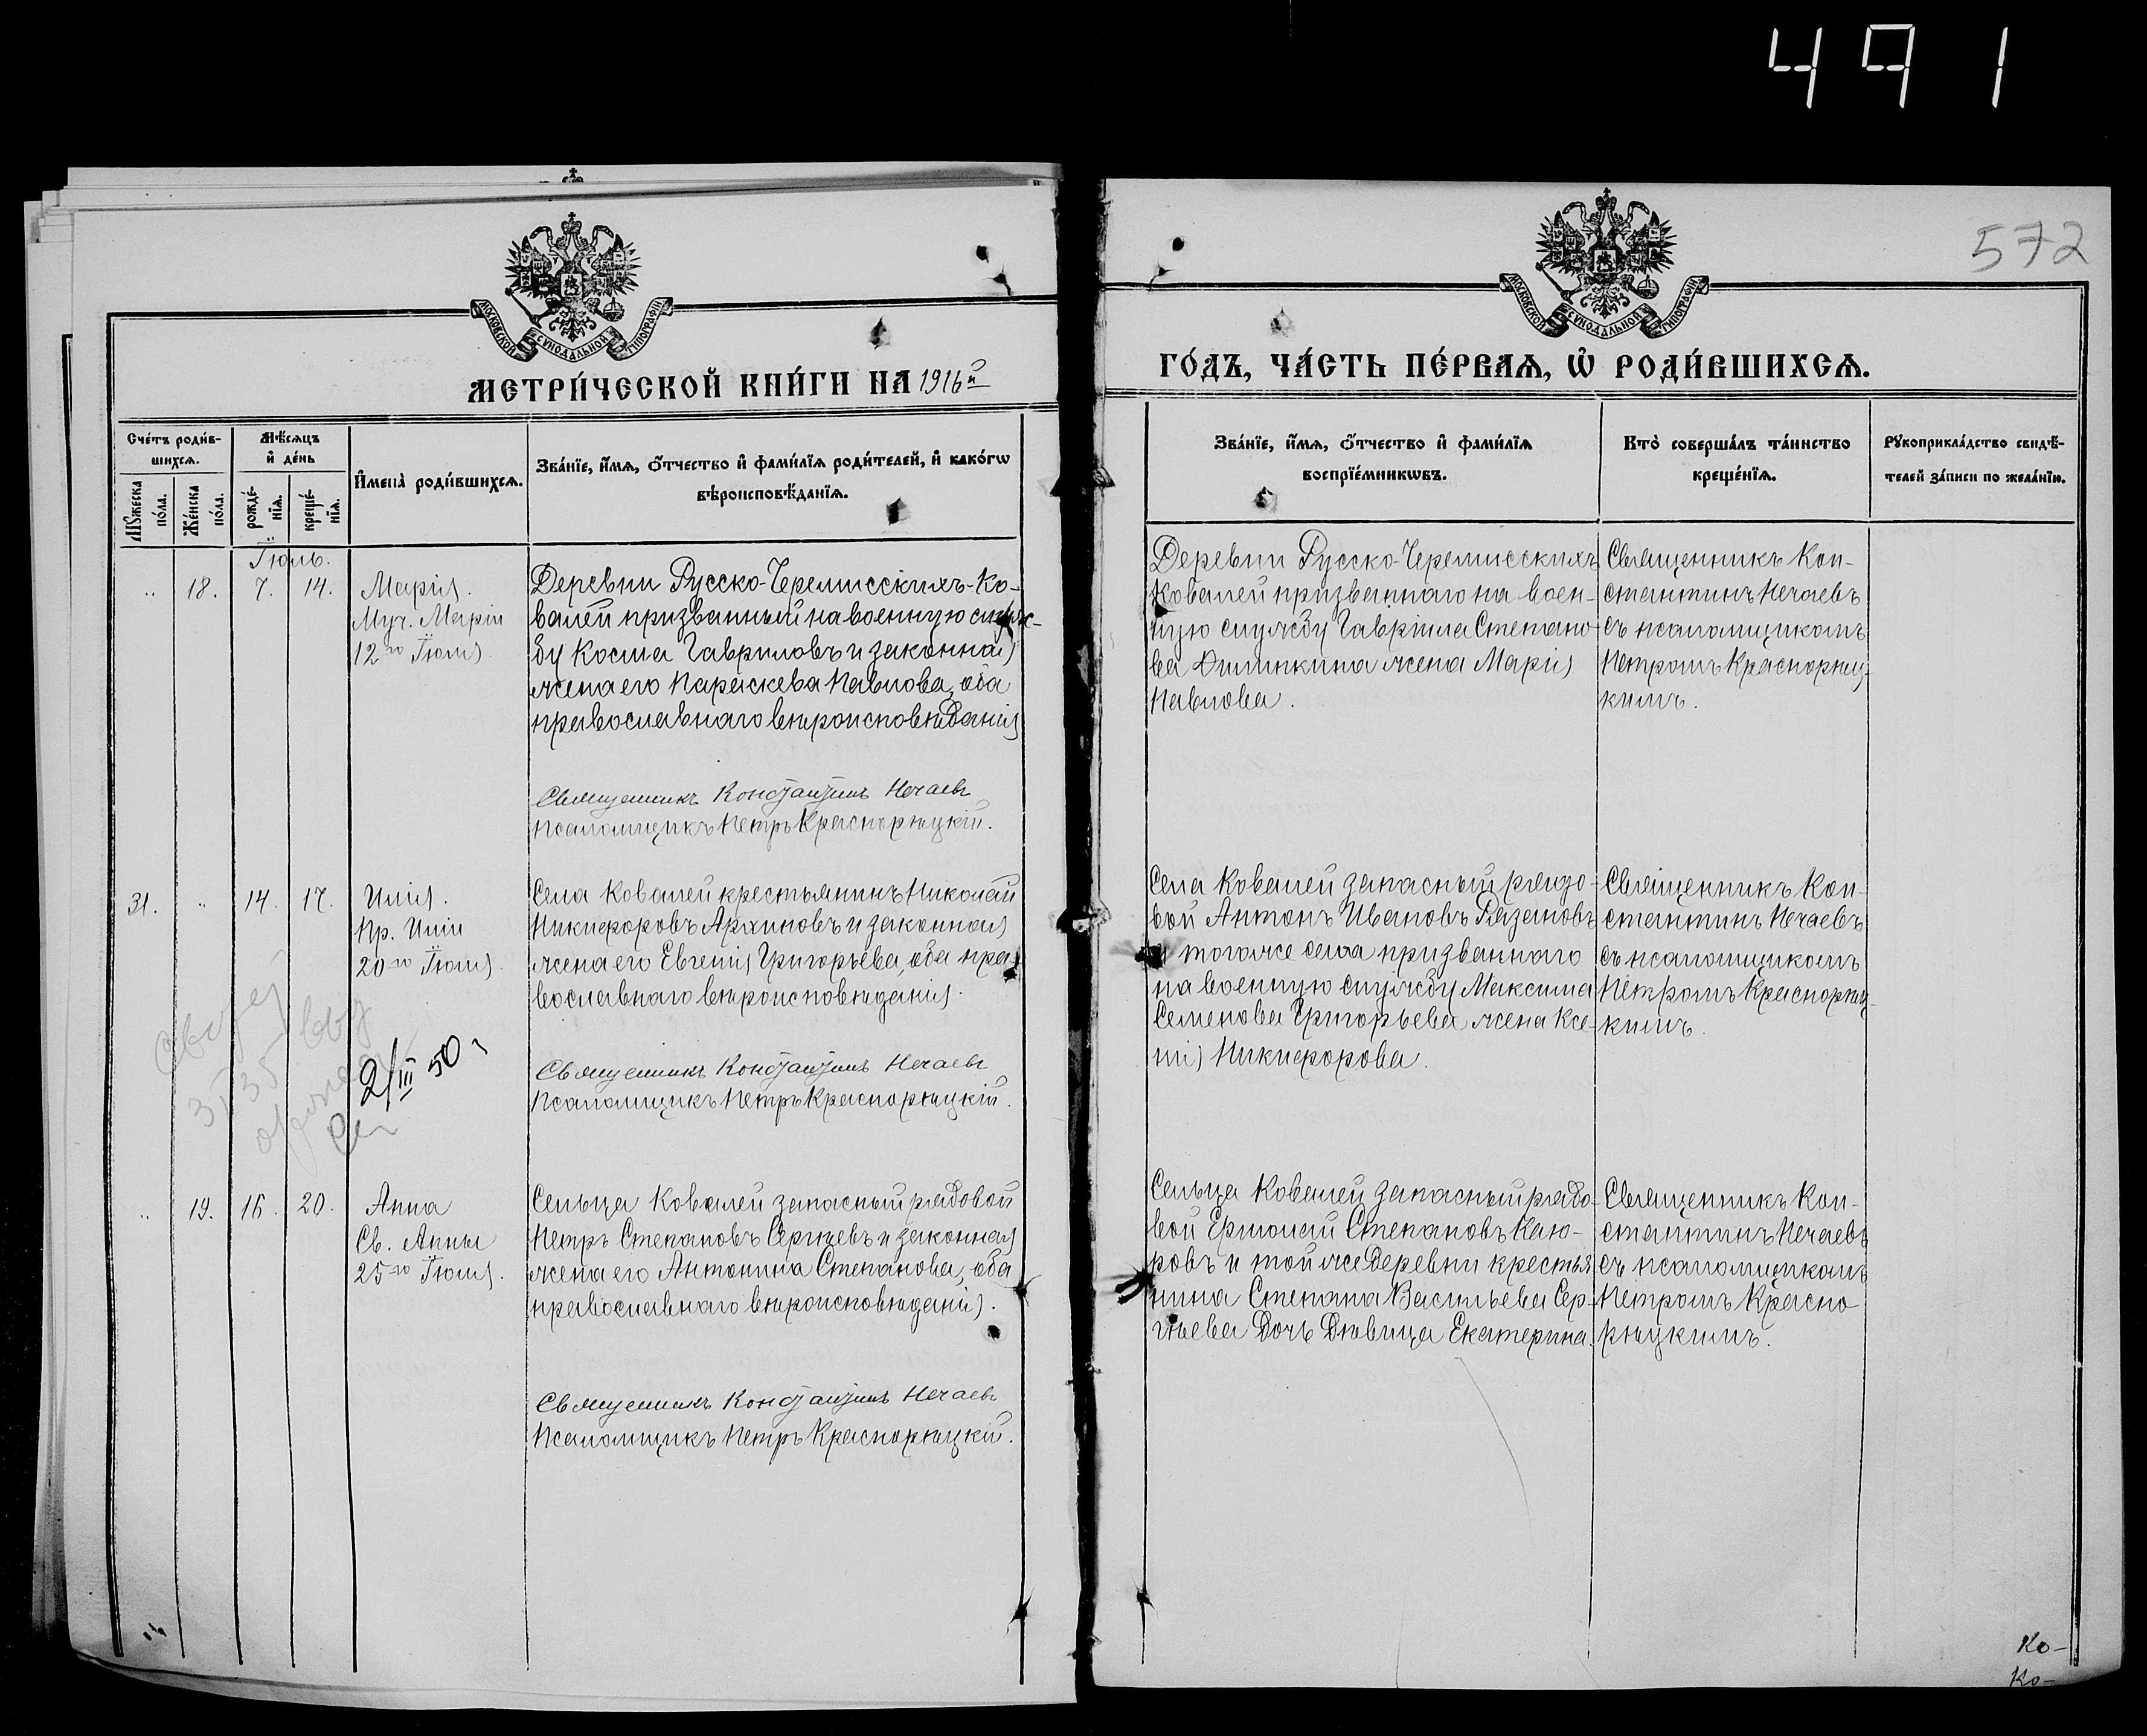 491
572
МОСКОВСКОЙ СѴНОДАЛЬНОЙ ТИПОГРАФІИ
МОСКОВСКОЙ СѴНОДАЛЬНОЙ ТИПОГРАФІИ
МЕТРИ́ЧЕСКОЙ КНИ́ГИ НА 1916й
ГО́ДЪ, ЧА́СТЬ ПЕ́РВАѦ, Ѡ҆ РОДИ́ВШИХСѦ.
Сче́тъ роди́в-
шихсѧ.
Мѣ́сѧцъ
и҆ де́нь
Мꙋжеска по́ла.
Же́нска по́ла.
рожде́-
нїѧ.
креще́-
нїѧ.
И҆мена̀ роди́вшихсѧ.
Зва́нїе, и҆́мѧ, ѻ҆́тчество и҆ фами́лїѧ роди́телей, и҆ како́гѡ
вѣроисповѣ́данїѧ.
Зва́нїе, и҆́мѧ, ѻ҆́тчество и҆ фами́лїѧ
воспрїе́мникѡвъ.
Кто̀ соверша́лъ та́инство
креще́нїѧ.
Рꙋкоприкла́дство свидѣ́-
телей за́писи по жела́нїю.
Іюль.
18. 7. 14. Марія.
Муч. Маріи
12го Іюля.
Деревни Русско-Черемисскихъ-Ко-
валей призванный на военную служ-
бу Косма Гавриловъ и законная
жена его Параскева Павлова, оба
православнаго вѣроисповѣданія
Священникъ Константинъ Нечаевъ
Псаломщикъ Петръ Краснорѣцкій.
Деревни Русско-Черемисскихъ
Ковалей призваннаго на воен-
ную службу Гавріила Степано-
ва жена Марія
Павлова.
Священникъ Кон-
стантинъ Нечаевъ
съ псаломщикомъ
Петромъ Краснорѣц-
кимъ.
31. " 14. 17. Илія.
Пр. Иліи
20го Іюля.
Села Ковалей крестьянинъ Николай
Никифоровъ Архиповъ и законная
жена его Евгенія Григорьева, оба пра-
вославнаго вѣроисповѣданія.
2/III 50 г
Священникъ Константинъ Нечаевъ
Псаломщикъ Петръ Краснорѣцкій.
Села Ковалей запасный рядо-
вой Антонъ Ивановъ Рязановъ
и тогоже села призваннаго
на военную службу Максима
Семенова Григорьева жена Ксе-
нія Никифорова.
Священникъ Кон-
стантинъ Нечаевъ
съ псаломщикомъ
Петромъ Краснорѣц-
кимъ.
" 19. 16. 20. Анна
Св. Анны
25го Іюля.
Сельца Ковалей запасный рядовой
Петръ Степановъ Сергѣевъ и законная
жена его Антонина Степанова, оба
православнаго вѣроисповѣданія.
Священникъ Константинъ Нечаевъ
Псаломщикъ Петръ Краснорѣцкій.
Сельца Ковалей запасный рядо-
вой Ермолай Степановъ Каю-
ровъ и той же деревни крестья-
нина Степана Васильева Сер-
гѣева дочь дѣвица Екатерина.
Священникъ Кон-
стантинъ Нечаевъ
съ псаломщикомъ
Петромъ Красно-
рѣцкимъ.
Ко-
Ко-